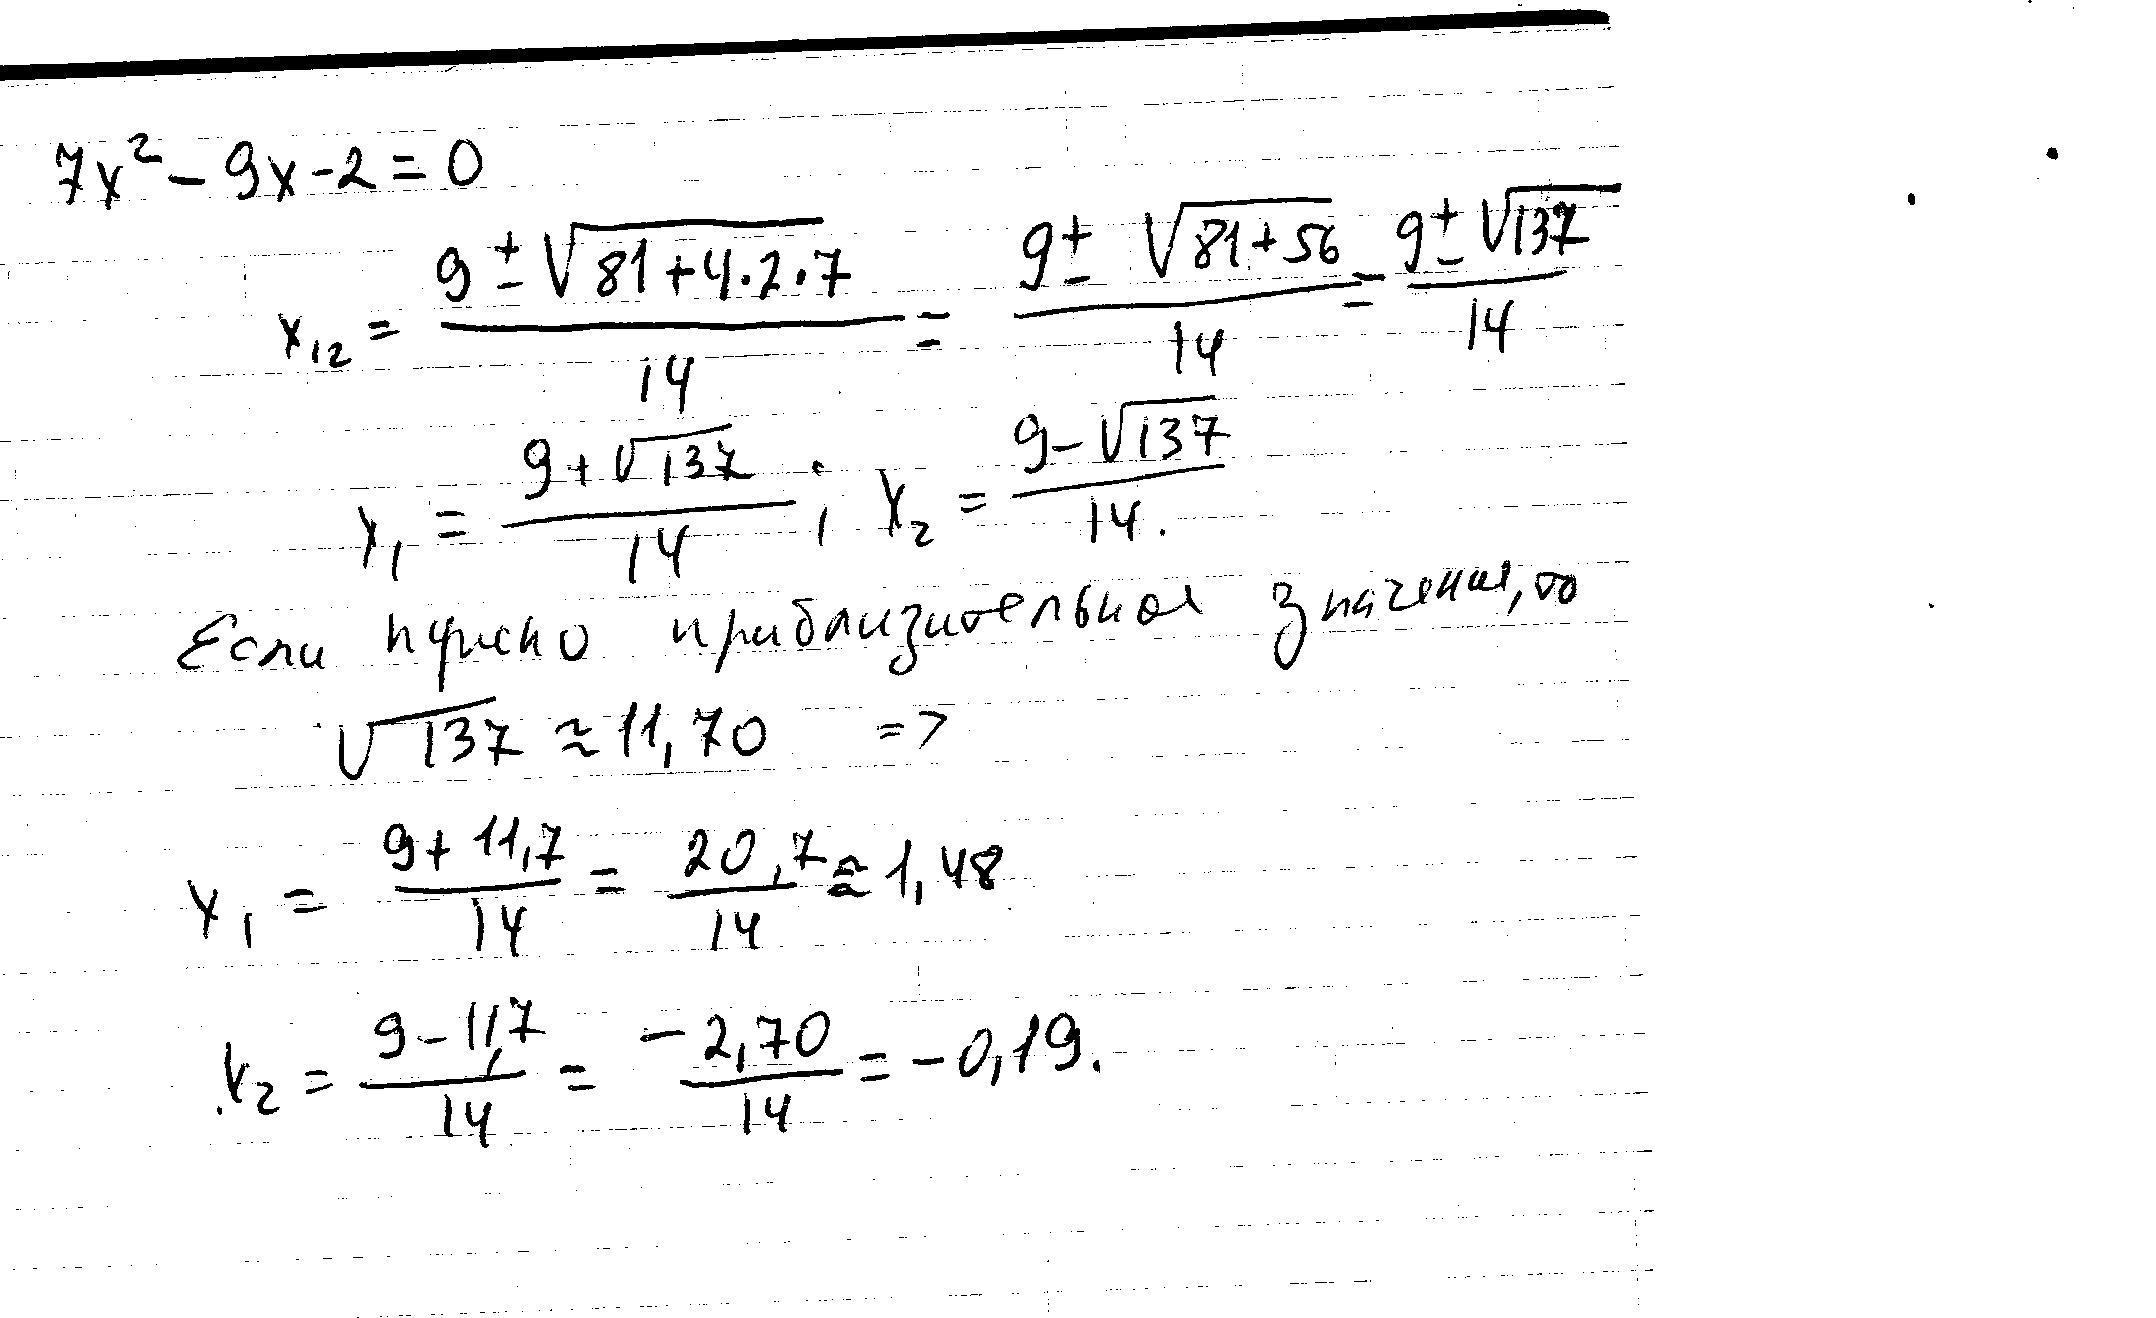 7x² - 9x - 2 = 0
x₁₂ = (9 ± √(81 + 4·2·7))/14 = (9 ± √(81 + 56))/14 = (9 ± √137)/14
x₁ = (9 + √137)/14 ; x₂ = (9 - √137)/14.
Если нужно приблизительное значения, то
√137 ≈ 11,70 =>
x₁ = (9 + 11,7)/14 = 20,7/14 ≈ 1,48
x₂ = (9 - 11,7)/14 = -2,70/14 = -0,19.